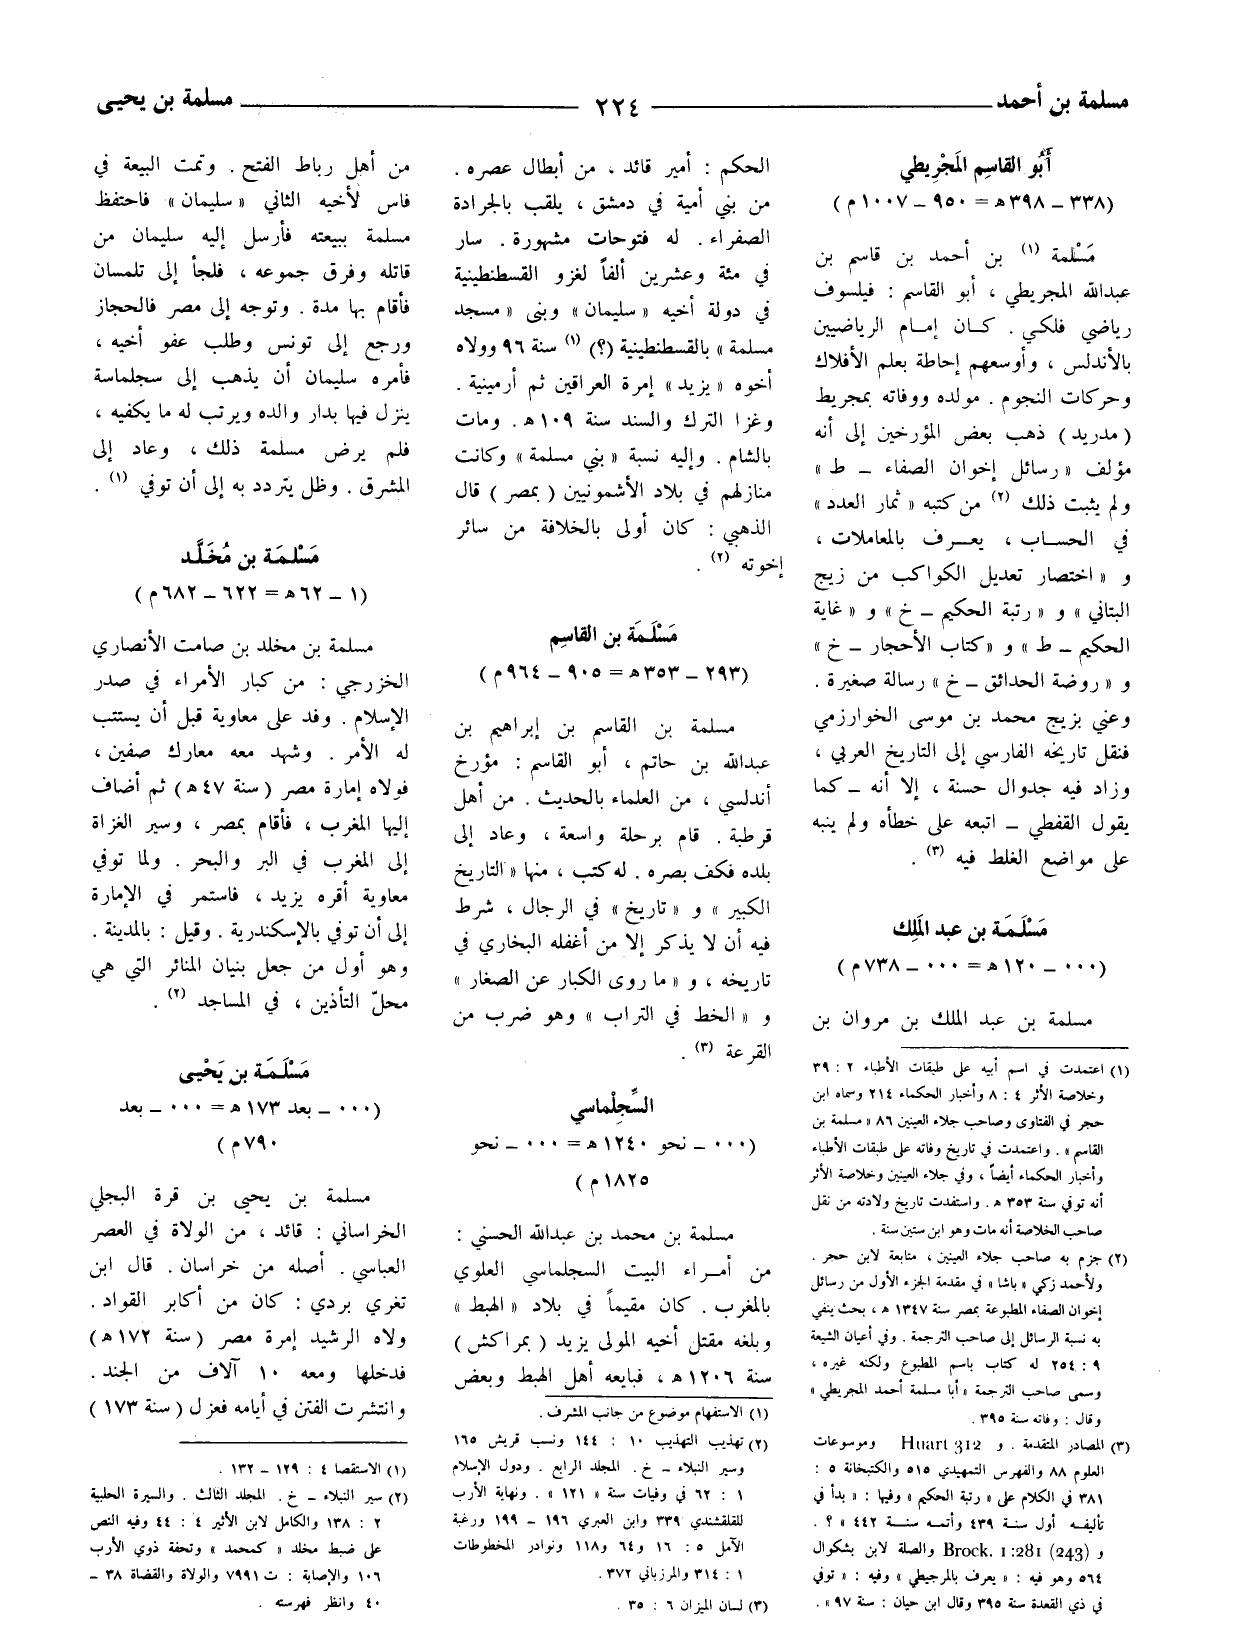 مسلمة بن أحمد ــــــ ٢٢٤ ــــــ مسلمة بن يحيى
أبُو القاسِم المَجْرِيطي
(٣٣٨ ــ ٣٩٨هـ = ٩٥٠ ــ ١٠٠٧م)
مَسْلمة (١) بن أحمد بن قاسم بن
عبدالله المجريطي ، أبو القاسم : فيلسوف
رياضي فلكي . كـان إمـام الرياضيين
بالأندلس ، وأوسعهم إحاطة بعلم الأفلاك
وحركات النجوم . مولده ووفاته بمجريط
( مدريد ) ذهب بعض المؤرخين إلى أنه
مؤلف « رسائل إخوان الصفاء ــ ط »
ولم يثبت ذلك (٢) من كتبه « ثمار العدد »
في الحسـاب ، يعـرف بالمعاملات ،
و « اختصار تعديل الكواكب من زيج
البتاني » و « رتبة الحكيم ــ خ » و « غاية
الحكيم ــ ط » و « كتاب الأحجار ــ خ »
و « روضة الحدائق ــ خ » رسالة صغيرة .
وعني بزيج محمد بن موسى الخوارزمي
فنقل تاريخه الفارسي إلى التاريخ العربي ،
وزاد فيه جدوال حسنة ، إلا أنه ــ كما
يقول القفطي ــ اتبعه على خطأه ولم ينبه
على مواضع الغلط فيه (٣) .
مَسْلَمَة بن عبد المَلِك
(٠٠٠ ــ ١٢٠هـ = ٠٠٠ ــ ٧٣٨م)
مسلمة بن عبد الملك بن مروان بن
(١) اعتمدت في اسم أبيه على طبقات الأطباء ٢ : ٣٩
وخلاصة الأثر ٤ : ٨ وأخبار الحكماء ٢١٤ وسماه ابن
حجر في الفتاوى وصاحب جلاء العينين ٨٦ « مسلمة بن
القاسم » . واعتمدت في تاريخ وفاته على طبقات الأطباء
وأخبار الحكماء أيضاً ، وفي جلاء العينين وخلاصة الأثر
أنه توفي سنة ٣٥٣ هـ . واستفدت تاريخ ولادته من نقل
صاحب الخلاصة أنه مات وهو ابن ستين سنة .
(٢) جزم به صاحب جلاء العينين ، متابعة لابن حجر .
ولأحمد زكي « باشا » في مقدمة الجزء الأول من رسائل
إخوان الصفاء المطبوعة بمصر سنة ١٣٤٧ هـ ، بحث ينفي
به نسبة الرسائل إلى صاحب الترجمة . وفي أعيان الشيعة
٩ : ٢٥٤ له كتاب باسم المطبوع ولكنه غيره ،
وسمى صاحب الترجمة « أبا مسلمة أحمد المجريطي »
وقال : وفاته سنة ٣٩٥ .
(٣) المصادر المتقدمة . و Huart 312 وموسوعات
العلوم ٨٨ والفهرس التمهيدي ٥١٥ والكتبخانة ٥ :
٣٨١ في الكلام على « رتبة الحكيم » وفيها : « بدأ في
تأليفـه أول سنـة ٤٣٩ وأتمـه سنـة ٤٤٢ » ؟ .
و Brock. 1:281 (243) والصلة لابن بشكوال
٥٦٤ وهو فيه : « يعرف بالمرجيطي » وفيه : « توفي
في ذي القعدة سنة ٣٩٥ وقال ابن حيان : سنة ٩٧ » .
الحكم : أمير قائد ، من أبطال عصره .
من بني أمية في دمشق ، يلقب بالجرادة
الصفراء . له فتوحات مشهورة . سار
في مئة وعشرين ألفاً لغزو القسطنطينية
في دولة أخيه « سليمان » وبنى « مسجد
مسلمة » بالقسطنطينية (؟) (١) سنة ٩٦ وولاه
أخوه « يزيد » إمرة العراقين ثم أرمينية .
وغزا الترك والسند سنة ١٠٩هـ . ومات
بالشام . وإليه نسبة « بني مسلمة » وكانت
منازلهم في بلاد الأشمونيين ( بمصر ) قال
الذهبي : كان أولى بالخلافة من سائر
إخوته (٢) .
مَسْلَمَة بن القاسِم
(٢٩٣ ــ ٣٥٣هـ = ٩٠٥ ــ ٩٦٤م)
مسلمة بن القاسم بن إبراهيم بن
عبدالله بن حاتم ، أبو القاسم : مؤرخ
أندلسي ، من العلماء بالحديث . من أهل
قرطبة . قام برحلة واسعة ، وعاد إلى
بلده فكف بصره . له كتب ، منها « التاريخ
الكبير » و « تاريخ » في الرجال ، شرط
فيه أن لا يذكر إلا من أغفله البخاري في
تاريخه ، و « ما روى الكبار عن الصغار »
و « الخط في التراب » وهو ضرب من
القرعة (٣) .
السِّجِلْماسي
(٠٠٠ ــ نحو ١٢٤٠ هـ = ٠٠٠ ــ نحو
١٨٢٥م)
مسلمة بن محمد بن عبدالله الحسني :
من أمـراء البيت السجلماسي العلوي
بالمغرب . كان مقيماً في بلاد « الهبط »
وبلغه مقتل أخيه المولى يزيد ( بمراكش )
سنة ١٢٠٦ هـ ، فبايعه أهل الهبط وبعض
(١) الاستفهام موضوع من جانب المشرف .
(٢) تهذيب التهذيب ١٠ : ١٤٤ ونسب قريش ١٦٥
وسير النبلاء ــ خ . المجلد الرابع . ودول الإسلام
١ : ٦٢ في وفيات سنة « ١٢١ » . ونهاية الأرب
للقلقشندي ٣٣٩ وابن العبري ١٩٦ ــ ١٩٩ ورغبة
الآمل ٥ : ١٦ و٦٤ و١١٨ ونوادر المخطوطات
١ : ٣١٤ والمرزباني ٣٧٢ .
(٣) لسان الميزان ٦ : ٣٥ .
من أهل رباط الفتح . وتمت البيعة في
فاس لأخيه الثاني « سليمان » فاحتفظ
مسلمة ببيعته فأرسل إليه سليمان من
قاتله وفرق جموعه ، فلجأ إلى تلمسان
فأقام بها مدة . وتوجه إلى مصر فالحجاز
ورجع إلى تونس وطلب عفو أخيه ،
فأمره سليمان أن يذهب إلى سجلماسة
ينزل فيها بدار والده ويرتب له ما يكفيه ،
فلم يرض مسلمة ذلك ، وعاد إلى
المشرق . وظل يتردد به إلى أن توفي (١) .
مَسْلَمَة بن مُخَلَّد
(١ ــ ٦٢هـ = ٦٢٢ ــ ٦٨٢م)
مسلمة بن مخلد بن صامت الأنصاري
الخزرجي : من كبار الأمراء في صدر
الإسلام . وفد على معاوية قبل أن يستتب
له الأمر . وشهد معه معارك صفين ،
فولاه إمارة مصر (سنة ٤٧هـ) ثم أضاف
إليها المغرب ، فأقام بمصر ، وسير الغزاة
إلى المغرب في البر والبحر . ولما توفي
معاوية أقره يزيد ، فاستمر في الإمارة
إلى أن توفي بالإسكندرية . وقيل : بالمدينة .
وهو أول من جعل بنيان المنائر التي هي
محلّ التأذين ، في المساجد (٢) .
مَسْلَمَة بن يَحْيى
(٠٠٠ ــ بعد ١٧٣ هـ = ٠٠٠ ــ بعد
٧٩٠م)
مسلمة بن يحيى بن قرة البجلي
الخراساني : قائد ، من الولاة في العصر
العباسي . أصله من خراسان . قال ابن
تغري بردي : كان من أكابر القواد .
ولاه الرشيد إمرة مصر (سنة ١٧٢هـ)
فدخلها ومعه ١٠ آلاف من الجند .
وانتشرت الفتن في أيامه فعزل ( سنة ١٧٣ )
(١) الاستقصا ٤ : ١٢٩ ــ ١٣٢ .
(٢) سير النبلاء ــ خ . المجلد الثالث . والسيرة الحلبية
٢ : ١٣٨ والكامل لابن الأثير ٤ : ٤٤ وفيه النص
على ضبط مخلد « كمحمد » وتحفة ذوي الأرب
١٠٦ والإصابة : ت ٧٩٩١ والولاة والقضاة ٣٨ ــ
٤٠ وانظر فهرسته .